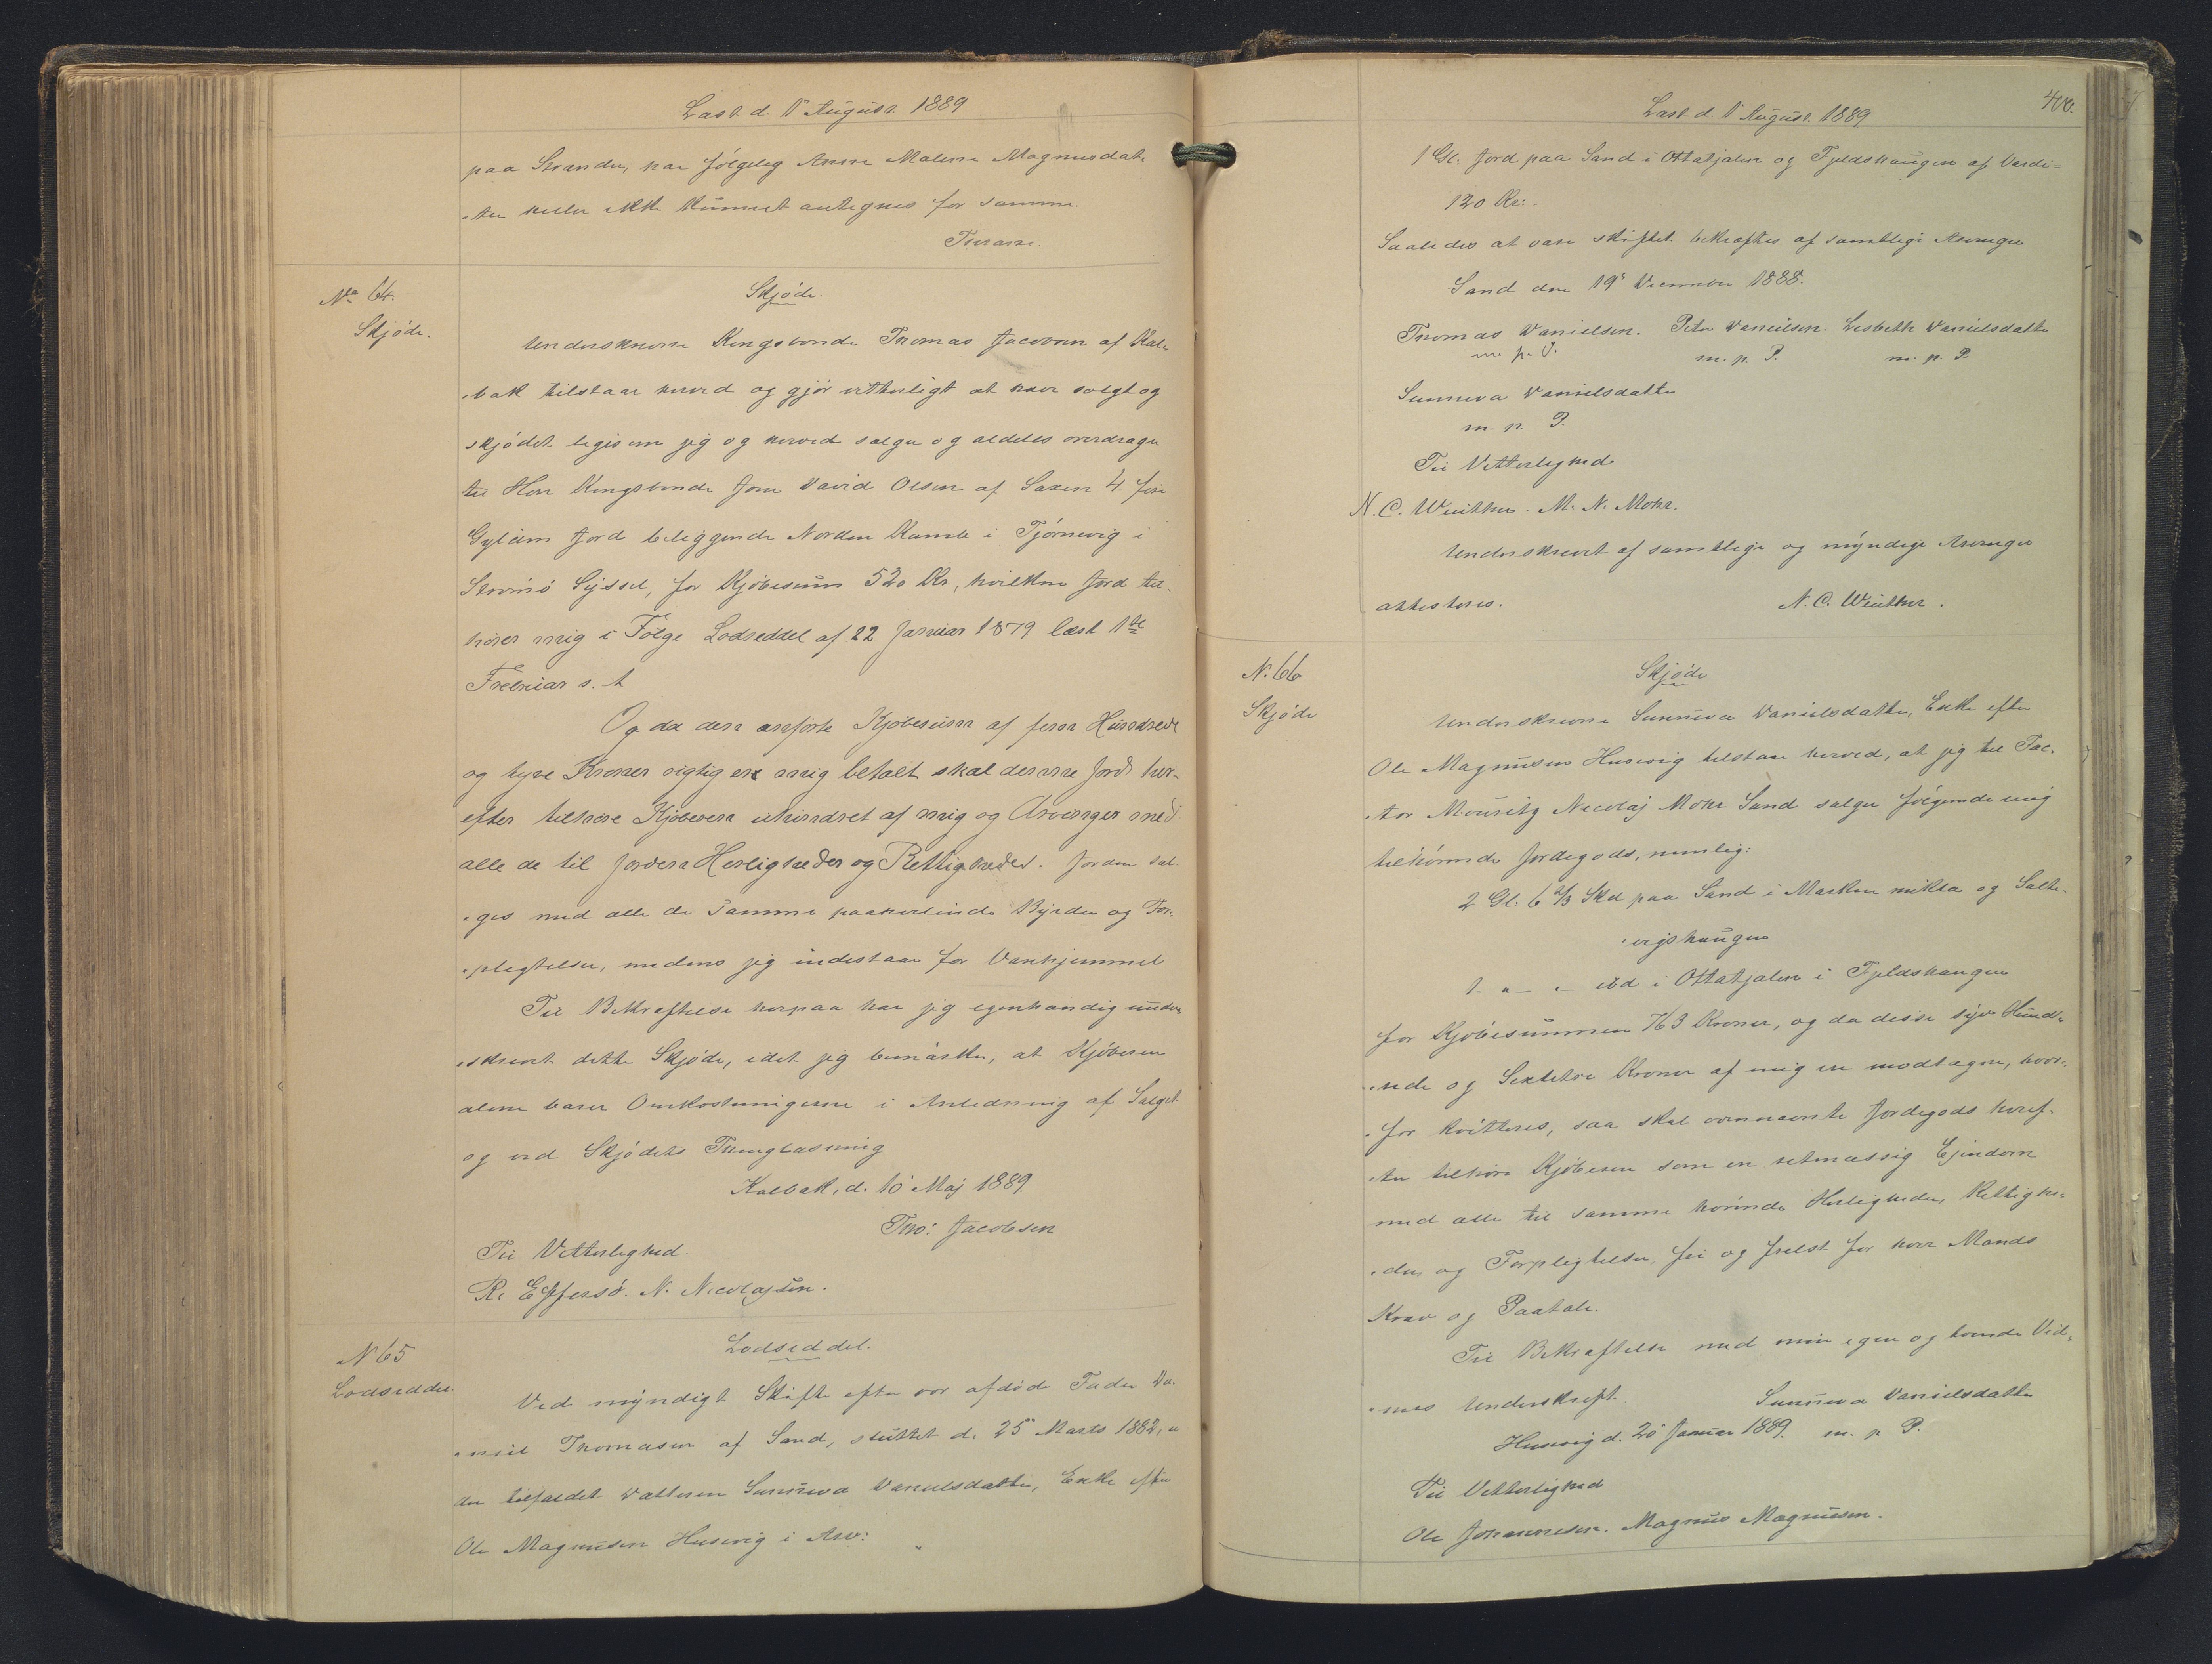 Læst d. 1' August. 1889
paa Strander, har følgelig Anne Malene Magnusdat-
ter heller ikke kunnet antegnes for samme.
No 64.
Skjøde.
Skjøde.
Underskrevne Kongsbonde Thomas Jacobsen af Kal-
bak tilstaar herved og gjør vitterligt at have solgt og
skjødet ligesom jeg og herved sælger og aldeles overdrager
til Herr Kongsbonde Jens David Olsen af Saxen 4 fire
Gylden Jord beliggende Norden Kamb i Tjørnevig i
Strømø Syssel, for Kjøbesum 520 Kr., hvilken Jord til-
hører mig i Følge Lodseddel af 22 Januar 1879 læst 1ste
Februar s. A
Og da den anførte Kjøbesum af fem Hundrede
og tyve Kroner rigtig er mig betalt skal denne Jord her-
efter tilhøre Kjøberen uhindret af mig og Arvinger med
alle de til Jorden Herligheder og Rettigheder. Jorden sæl-
ges med alle de Samme paahvilende Byrder og For-
pligtelser, medens jeg indestaar for Vanhjemmel
Til Bekræftelse herpaa har jeg egenhændig under-
skrevet dette Skjøde, idet jeg bemærker, at Kjøberen
alene bærer Omkostningerne i Anledning af Salget
og ved Skjødets Tinglæsning
Kalbak, d. 10' Maj 1889.
Tho: Jacobsen
Til Vitterlighed.
R. Effersø. N. Nicolajsen.
N 65
Lodseddel.
Lodseddel.
Ved myndigt Skifte efter vor afdøde Fader Da-
niel Thomasen af Sand, sluttet d. 25' Marts 1882, er
der tilfaldet Datteren Sunneva Danielsdatter, Enke efter
Ole Magnusen Husevig i Arv:
400.
Læst d. 1' August. 1889
1 Gl. Jord paa Sand i Ottatjalen og Fjeldshaugen af Værdi-
120 Kr:
Saaledes at være skiftet bekræftes af samtlige Arvinger
Sand den 19' December 1888.
Thomas Danielsen. Peter Danielsen. Lisbeth Danielsdatter
m. p. P. m. p. P. m. p. P.
Sunneva Danielsdatter
m. p. P.
Til Vitterlighed
N. C. Winther. M. N. Mohr.
Underskrevet af samtlige og myndige Arvinger
attesteres. N. C. Winther.
N. 66
Skjøde
Skjøde
Underskrevne Sunneva Danielsdatter, Enke efter
Ole Magnusen Husevig tilstaar herved, at jeg til Fac-
tor Mouritz Nicolaj Mohr Sand sælger følgende mig
tilhørende Jordegods, nemlig:
2 Gl. 6 2/3 Skd paa Sand i Marken mikla og Salte-
vigshaugen
1 - " - " - ibd i Ottatjalen i Fjeldshaugen
for Kjøbesummen 763 Kroner, og da disse syv Hund-
rede og Sextitre Kroner af mig er modtagne, hvor-
for kvitteres, saa skal ovennævnte Jordegods heref-
ter tilhøre Kjøberen som en retmæssig Ejendom
med alle til samme hørende Herligheder, Rettighe-
der og Forpligtelser, fri og frelst for hver Mands
Krav og Paatale.
Til Bekræftelse med min egen og tvende Vid-
ners Underskrift. Sunneva Danielsdatter
Husevig d. 20' Januar 1889. m. p. P.
Til Vitterlighed
Ole Johannesen. Magnus Magnusen.